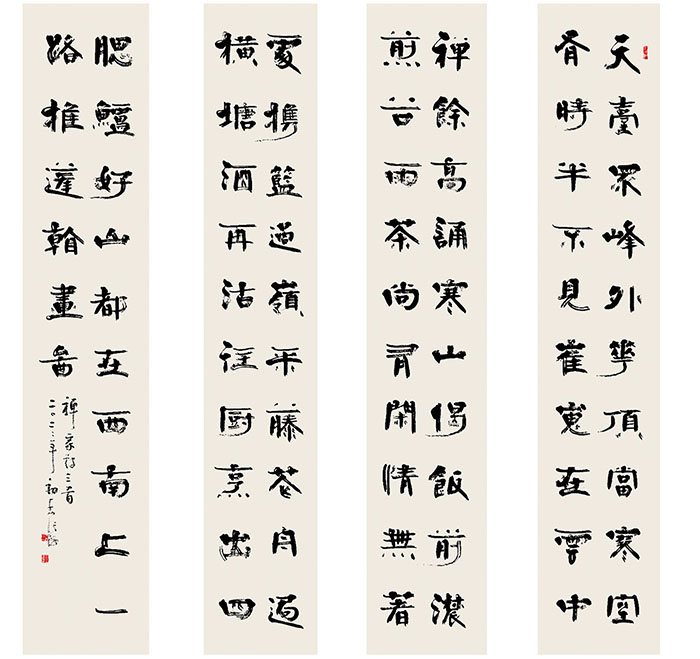 天臺眾峰外華頂當寒空
有時半不見崔嵬在雲中
禪餘高誦寒山偈飯前濃
煎谷雨茶尚有閑情無著
處攜籃過嶺采藤花舟過
橫塘酒再沽厨烹出四
腮鱸好山都在西南上一
路推蓬畫圖
禪家詩三首
二〇二三年初春